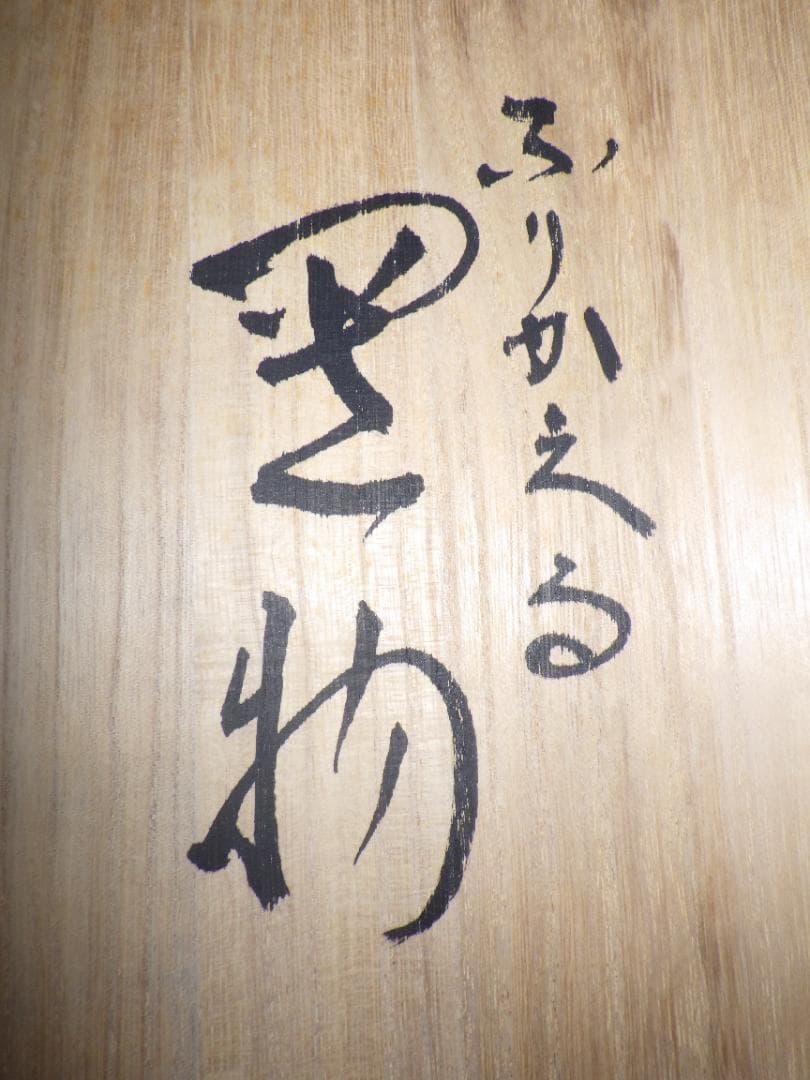 ふりかえる
置物